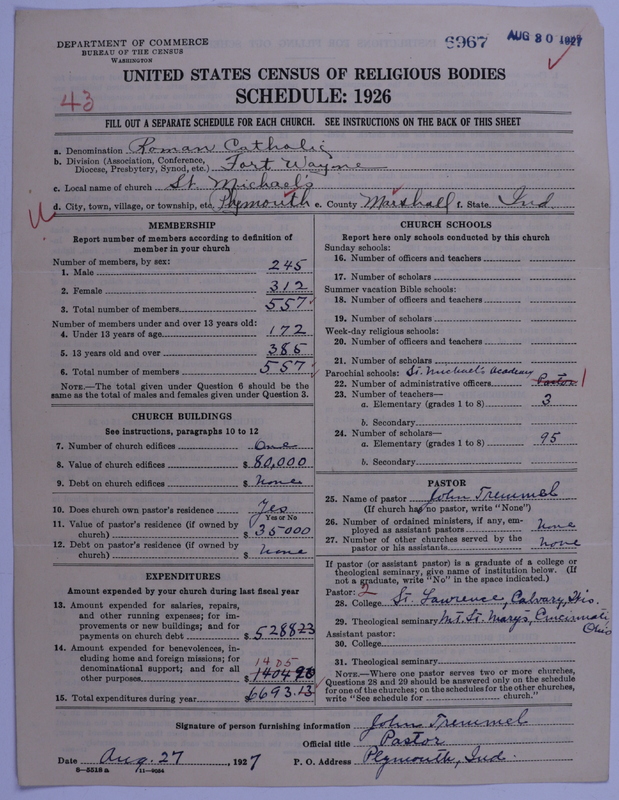 DEPARTMENT OF COMMERCE
BUREAU OF THE CENSUS
WASHINGTON
6967
AUG 30 1927
UNITED STATES CENSUS OF RELIGIOUS BODIES
SCHEDULE: 1926
43
FILL OUT A SEPARATE SCHEDULE FOR EACH CHURCH. SEE INSTRUCTIONS ON THE BACK OF THIS SHEET
a. Denomination Roman Catholic
b. Division (Association, Conference, Diocese, Presbytery, Synod, etc.) Fort Wayne
c. Local name of church St. Michael's
d. City, town, village, or township, etc. Plymouth e. County Marshall f. State Ind.
MEMBERSHIP
Report number of members according to definition of
member in your church
Number of members, by sex:
1. Male 245
2. Female 312
3. Total number of members 557
Number of members under and over 13 years old:
4. Under 13 years of age 172
5. 13 years old and over 385
6. Total number of members 557
NOTE.—The total given under Question 6 should be the
same as the total of males and females given under Question 3.
CHURCH BUILDINGS
See instructions, paragraphs 10 to 12
7. Number of church edifices One
8. Value of church edifices $ 80,000
9. Debt on church edifices $ None
10. Does church own pastor's residence Yes
Yes or No
11. Value of pastor's residence (if owned by
church) $ 35000
12. Debt on pastor's residence (if owned by
church) $ None
EXPENDITURES
Amount expended by your church during last fiscal year
13. Amount expended for salaries, repairs,
and other running expenses; for im-
provements or new buildings; and for
payments on church debt $ 528823
14. Amount expended for benevolences, in-
cluding home and foreign missions; for
denominational support; and for all
1405
other purposes $ 140490
15. Total expenditures during year $ 6693.13
CHURCH SCHOOLS
Report here only schools conducted by this church
Sunday schools:
16. Number of officers and teachers
17. Number of scholars
Summer vacation Bible schools:
18. Number of officers and teachers
19. Number of scholars
Week-day religious schools:
20. Number of officers and teachers
21. Number of scholars
Parochial schools: St. Michael's Academy
22. Number of administrative officers Pastor 1
23. Number of teachers—
a. Elementary (grades 1 to 8) 3
b. Secondary
24. Number of scholars—
a. Elementary (grades 1 to 8) 95
b. Secondary
PASTOR
25. Name of pastor John Tremmel
(If church has no pastor, write "None")
26. Number of ordained ministers, if any, em-
ployed as assistant pastors None
27. Number of other churches served by the
pastor or his assistants None
If pastor (or assistant pastor) is a graduate of a college or
theological seminary, give name of institution below. (If
not a graduate, write "No" in the space indicated.)
Pastor: 2
28. College St. Lawrence, Calvary, Wis.
29. Theological seminary Mt. St. Mary's, Cincinnati, Ohio
Assistant pastor:
30. College
31. Theological seminary
NOTE.—Where one pastor serves two or more churches,
Questions 28 and 29 should be answered only on the schedule
for one of the churches; on the schedules for the other churches,
write "See schedule for church."
Signature of person furnishing information John Tremmel
Official title Pastor
Date Aug. 27, 1927 P. O. Address Plymouth, Ind.
6—5518a 11—9034